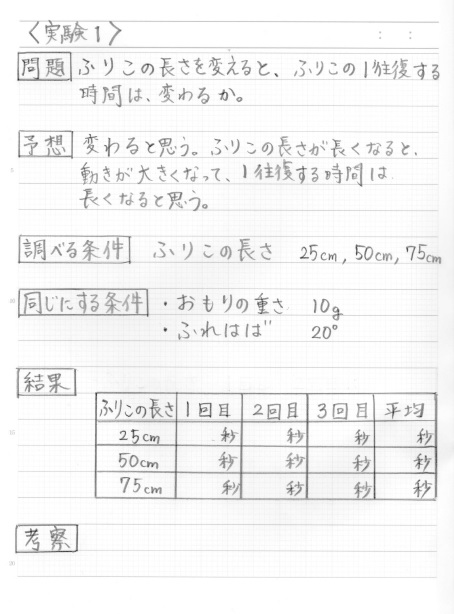 〈実験1〉
: :
問題 ふりこの長さを変えると、ふりこの1往復する
時間は、変わるか。
予想 変わると思う。ふりこの長さが長くなると、
動きが大きくなって、1往復する時間は
長くなると思う。
調べる条件 ふりこの長さ 25cm, 50cm, 75cm
同じにする条件 ・おもりの重さ 10g
・ふれはば 20°
結果
ふりこの長さ 1回目 2回目 3回目 平均
25cm 秒 秒 秒 秒
50cm 秒 秒 秒 秒
75cm 秒 秒 秒 秒
考察